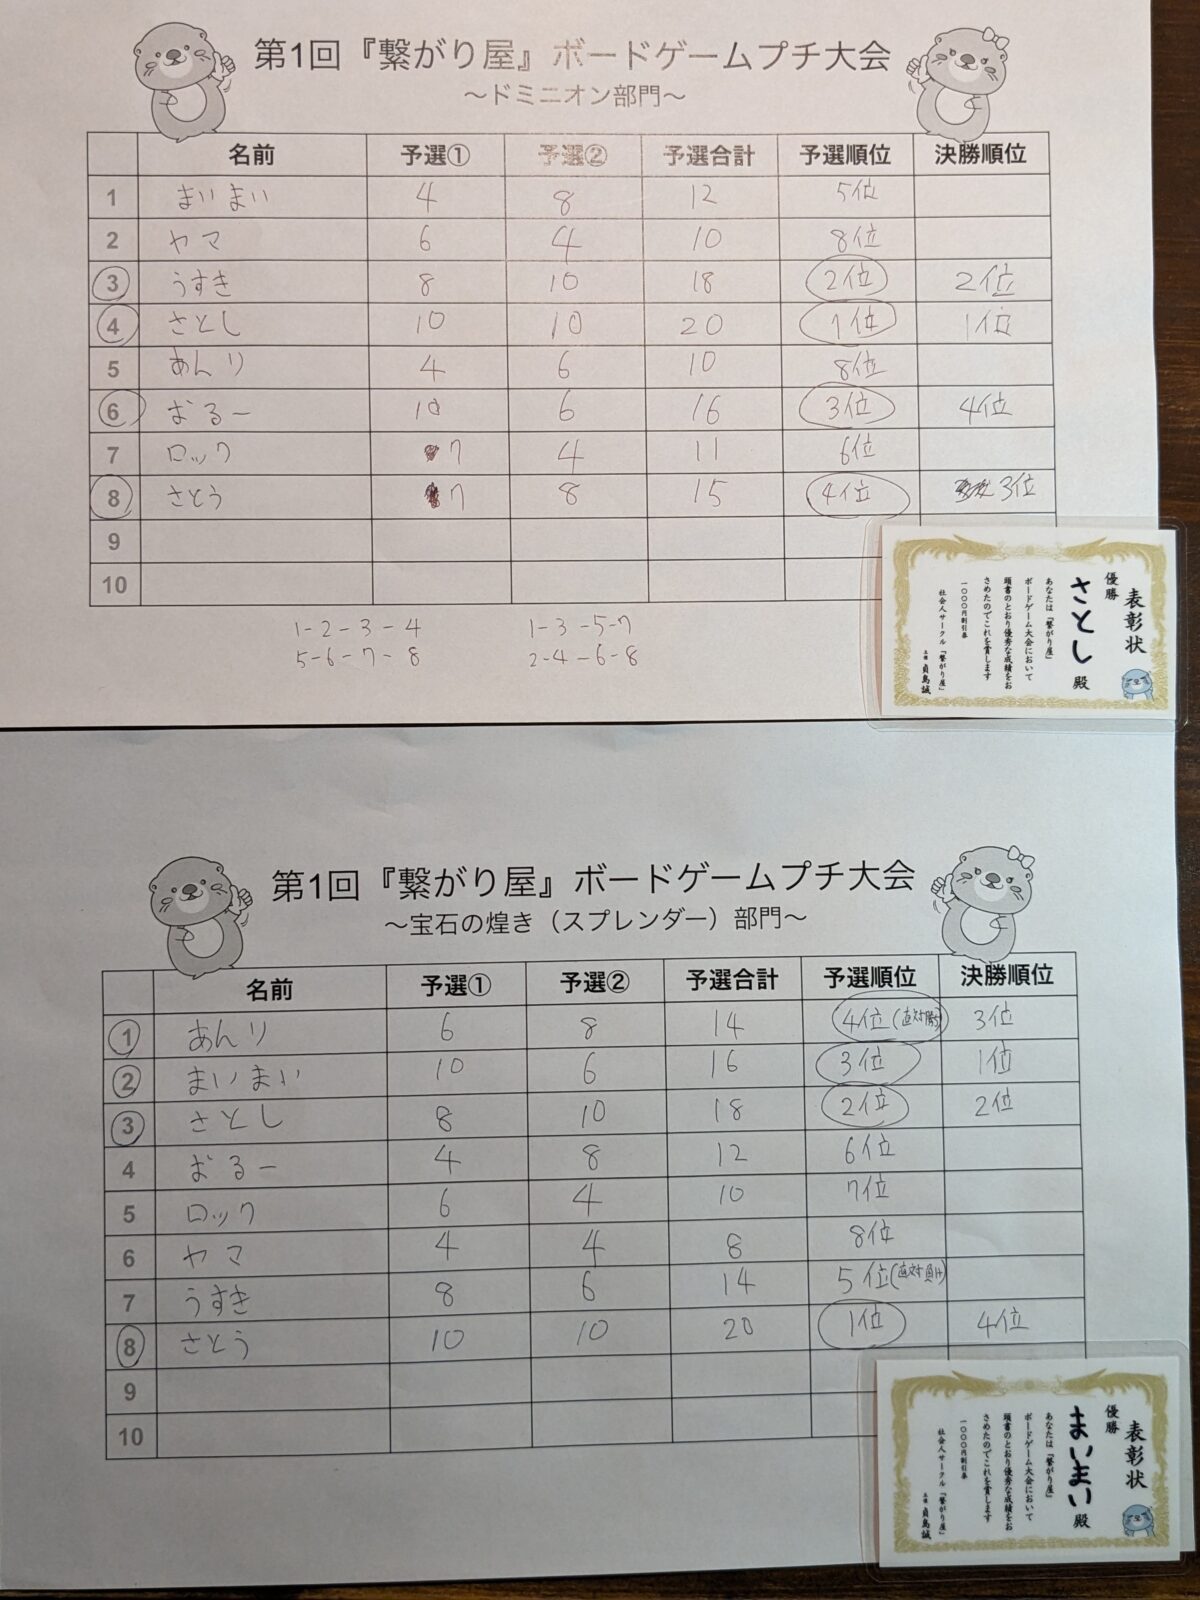 第1回『繋がり屋』ボードゲームプチ大会
〜ドミニオン部門〜
名前 予選① 予選② 予選合計 予選順位 決勝順位
1 まいまい 4 8 12 5位
2 ヤマ 6 4 10 8位
3 うすき 8 10 18 2位 2位
4 さとし 10 10 20 1位 1位
5 あんり 4 6 10 8位
6 おるー 10 6 16 3位 4位
7 ロック 7 4 11 6位
8 さとう 7 8 15 4位 3位
9
10
1-2-3-4 1-3-5-7
5-6-7-8 2-4-6-8
表彰状
優勝
さとし 殿
あなたは「繋がり屋」
ボードゲーム大会において
頭書のとおり優秀な成績をお
さめたのでこれを賞します
一〇〇〇円割引券
社会人サークル「繋がり屋」
主催 貞島誠
第1回『繋がり屋』ボードゲームプチ大会
〜宝石の煌き（スプレンダー）部門〜
名前 予選① 予選② 予選合計 予選順位 決勝順位
1 あんり 6 8 14 4位(直対勝ち) 3位
2 まいまい 10 6 16 3位 1位
3 さとし 8 10 18 2位 2位
4 おるー 4 8 12 6位
5 ロック 6 4 10 7位
6 ヤマ 4 4 8 8位
7 うすき 8 6 14 5位(直対負け)
8 さとう 10 10 20 1位 4位
9
10
表彰状
優勝
まいまい 殿
あなたは「繋がり屋」
ボードゲーム大会において
頭書のとおり優秀な成績をお
さめたのでこれを賞します
一〇〇〇円割引券
社会人サークル「繋がり屋」
主催 貞島誠